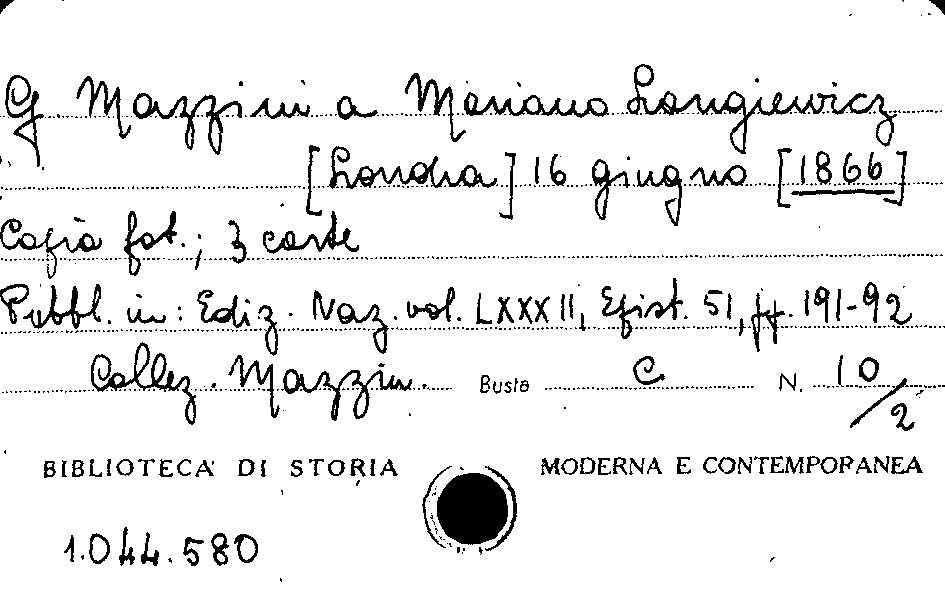 G. Mazzini a Mariano Langiewicz
[Londra] 16 giugno [1866]
Copia fot.; 3 carte
Pubbl. in: Ediz. Naz. vol. LXXXII, Epist. 51, pp. 191-92
Collez. Mazzin. Busta C N. 10/2
BIBLIOTECA DI STORIA MODERNA E CONTEMPORANEA
1.044.580